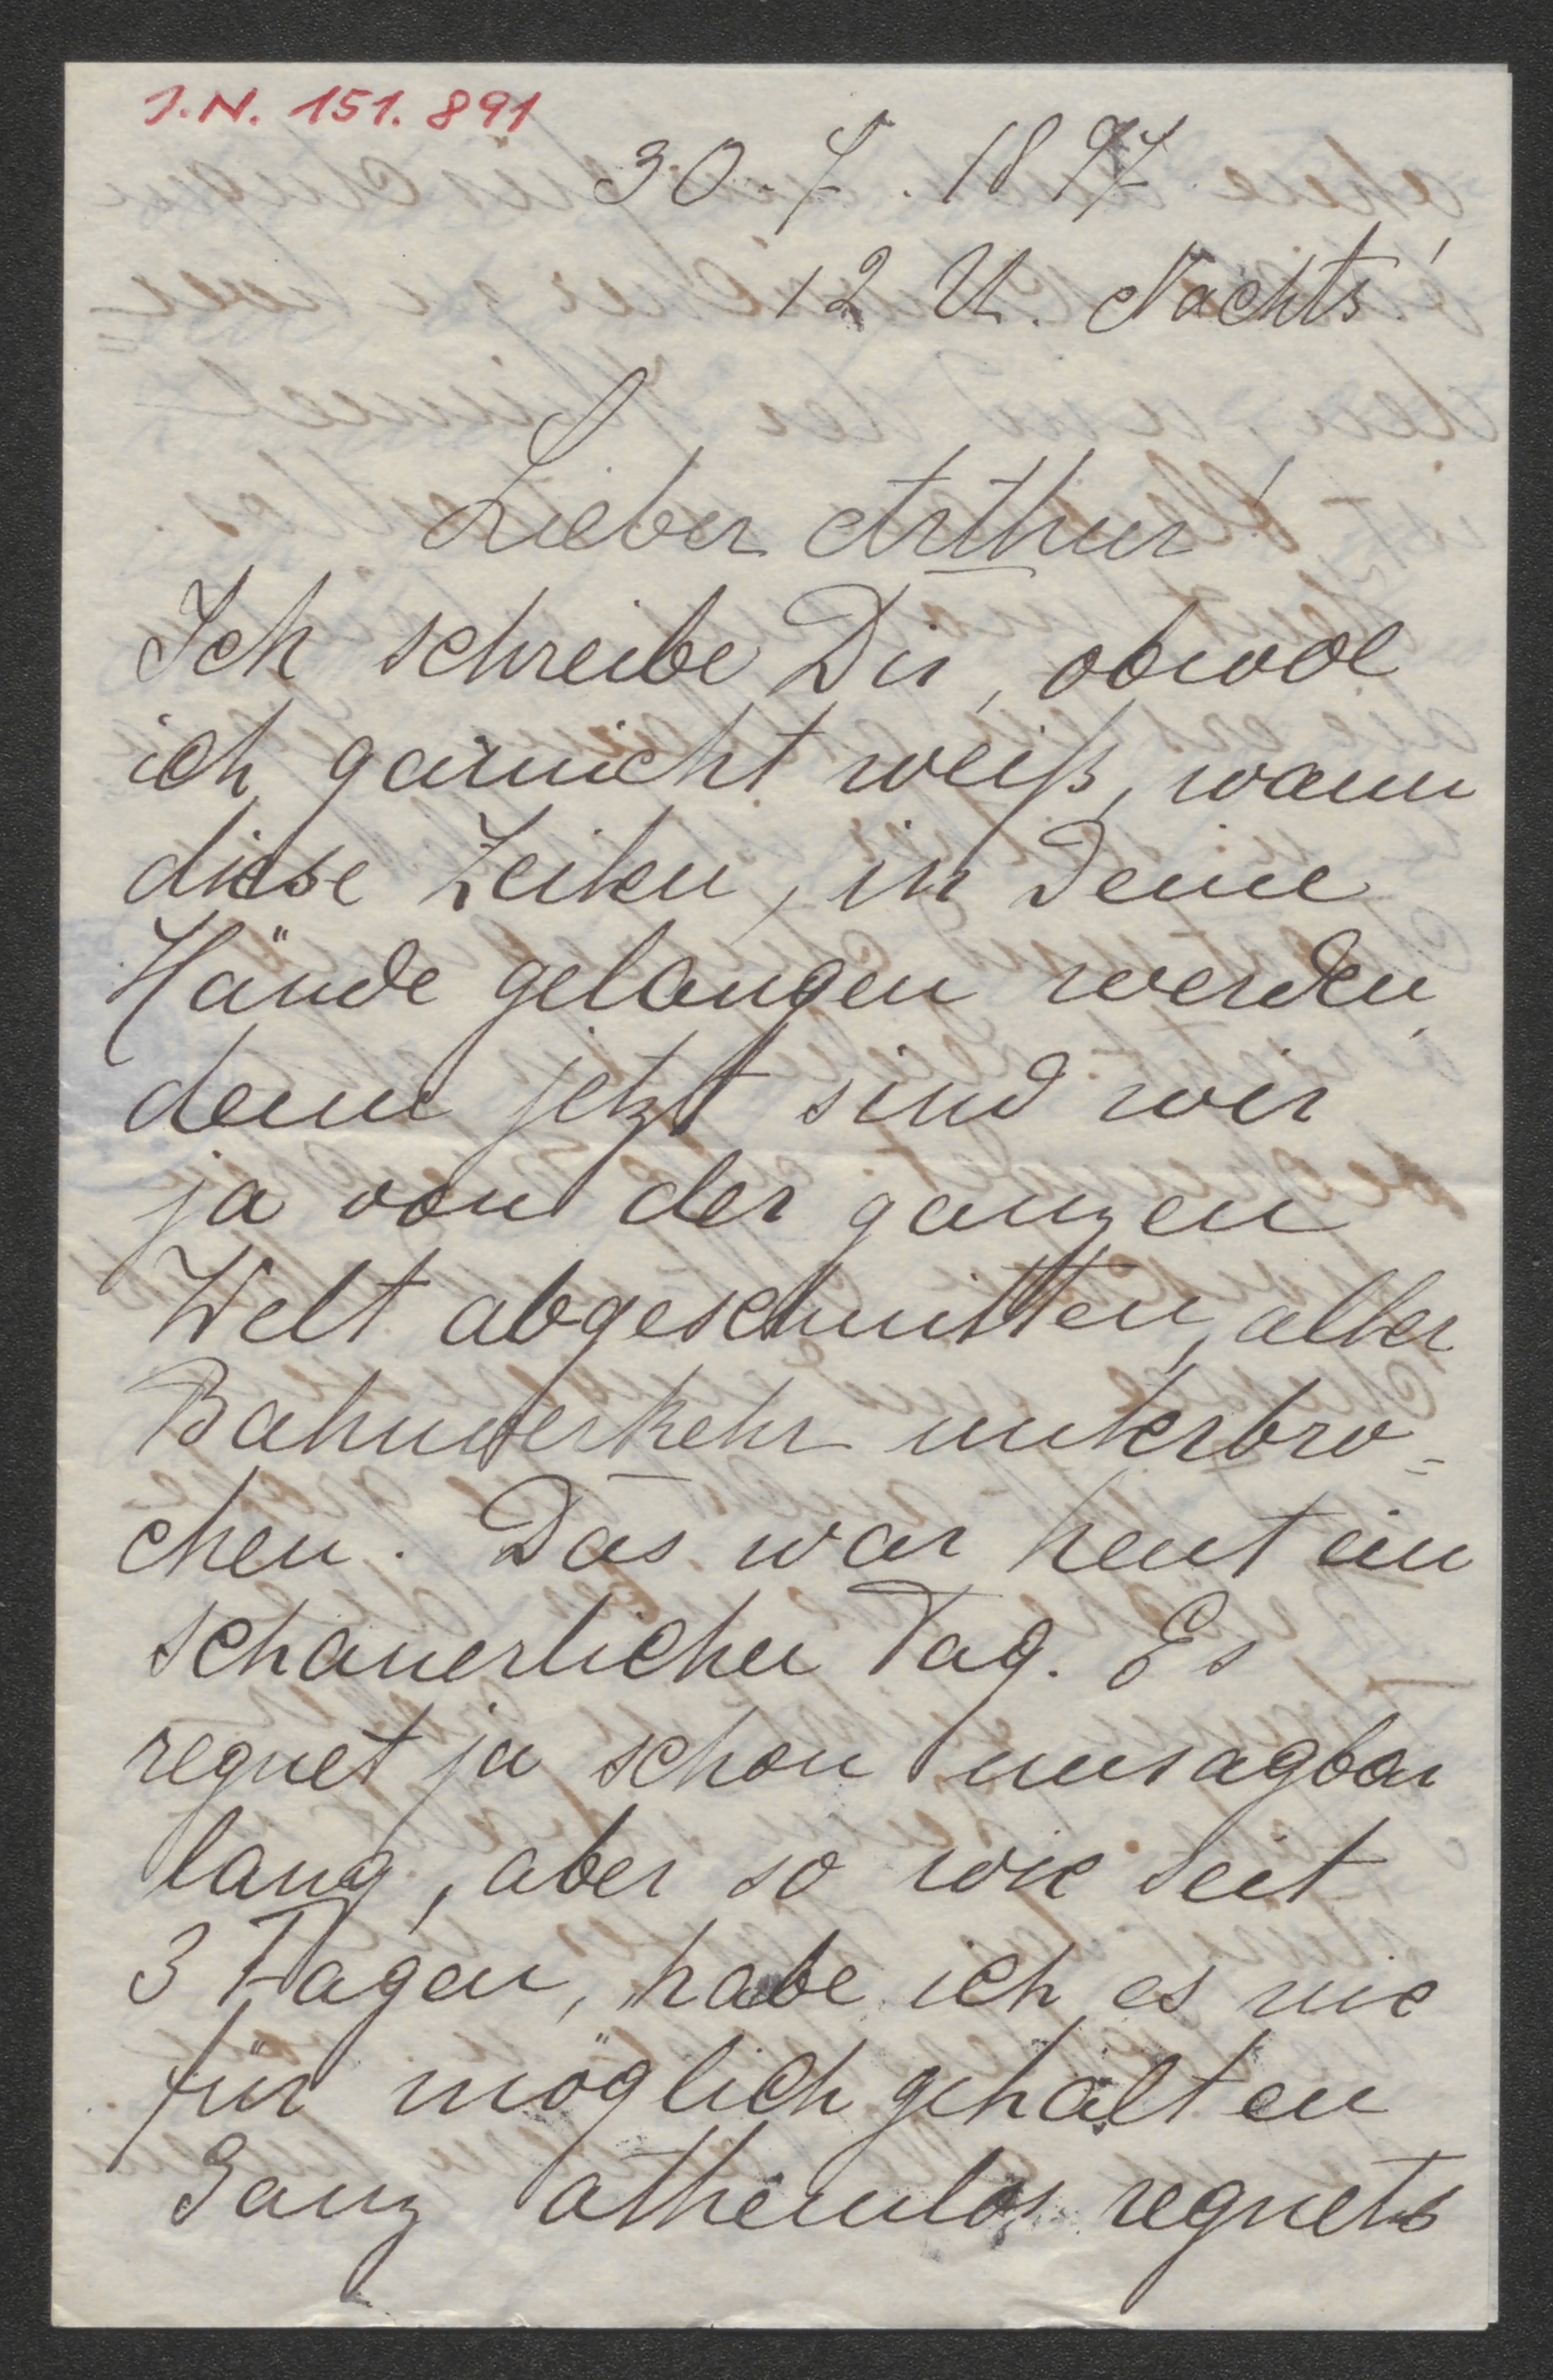 J.N. 151.891
30.7.1897.
12 U. Nachts!
Lieber Arthur!
Ich schreibe Dir, obwol
ich garnicht weiß, wann
diese Zeilen, in Deine
Hände gelangen werden,
denn jetzt sind wir
ja von der ganzen
Welt abgeschnitten, aller
Bahnverkehr unterbro=
chen. Das war heut ein
schauerlicher Tag. Es
regnet ja schon unsagbar
lang, aber so wie seit
3 Tagen, habe ich es nie
für möglich gehalten
Ganz athemlos regnets